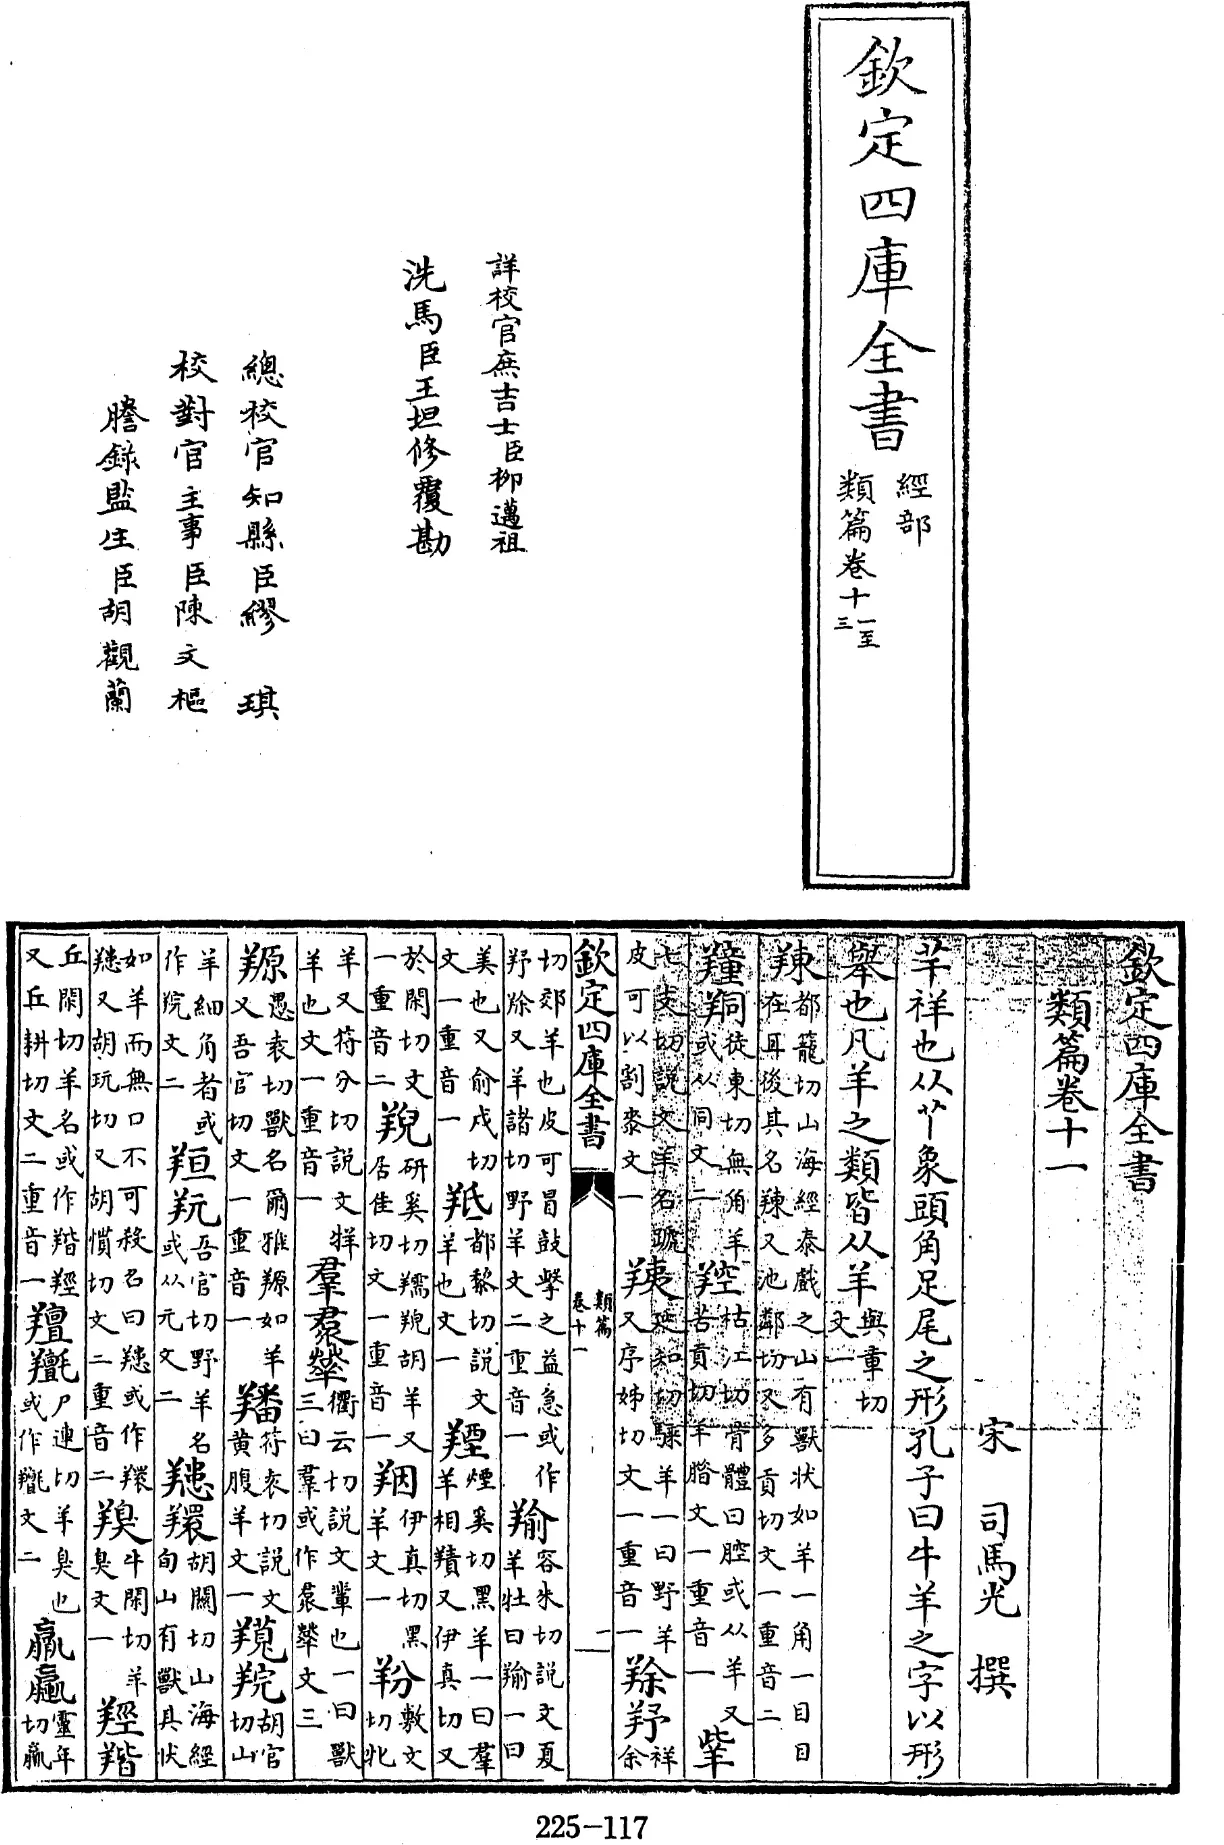 欽定四庫全書
經部
類篇卷十一至三
詳校官庶吉士臣柳邁祖
洗馬臣王坦修覆勘
總校官知縣臣繆琪
校對官主事臣陳文樞
謄錄監生臣胡觀蘭
欽定四庫全書
類篇卷十一
宋 司馬光 撰
羊祥也从𦫳象頭角足尾之形孔子曰牛羊之字以形
舉也凡羊之類皆从羊與章切文一
䍶都籠切山海經泰戲之山有獸状如羊一角一目目在耳後其名䍶又池鄰切又多貢切文一重音二
徒東切無角羊或从同文二羫枯江切骨體曰腔或从羊又苦貢切羊腊文一重音一
七支切説文羊名蹏皮可以割桼文一羠延知切騬羊一曰野羊又序姊切文一重音一羜祥余
欽定四庫全書
類篇卷十一
二
切郊羊也皮可冒鼓擊之益急或作羜又羊諸切野羊文二重音一羭容朱切説文夏羊牡曰羭一曰
美也又俞戍切文一重音一羝都黎切説文羊也文一煙奚切黑羊一曰羣羊相羵又伊真切又
於閑切文一重音二研奚切羺胡羊又居佳切文一重音一伊真切黑羊文一羒敷文切牝
羊又符分切説文牂羊也文一重音一羣衢云切説文輩也一曰獸三曰羣或作文三
羱愚袁切獸名爾雅羱如羊又吾官切文一重音一羳符袁切説文黄腹羊文一羦胡官切山
羊細角者或作羦文二吾官切野羊名或从元文二胡關切山海經旬山有獸其状
如羊而無口不可殺名曰或作又胡玩切又胡慣切文二重音二牛閑切羊臭文一羥
丘閑切羊名或作羥又丘耕切文二重音一羶尸連切羊臭也或作文二靈年切
225-117